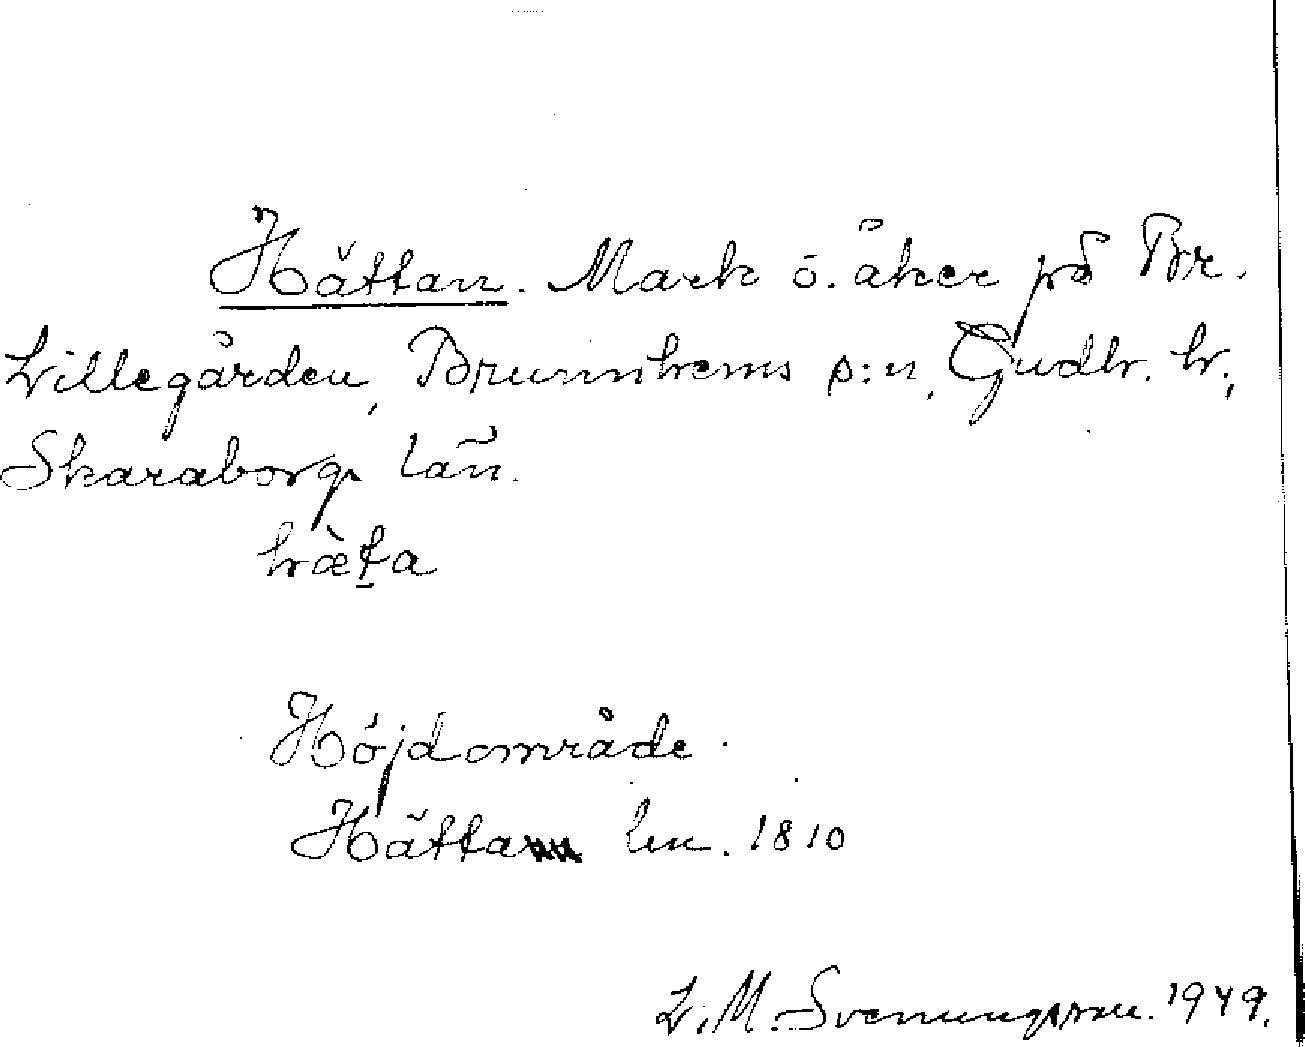 Hättan. Mark o. åker på Br.
Lillegården, Brunnhems s:n, Gudh. h.,
Skaraborgs län.
hæta
Höjdområde
Hätta lm. 1810
L. M. Svenungsson. 1949.